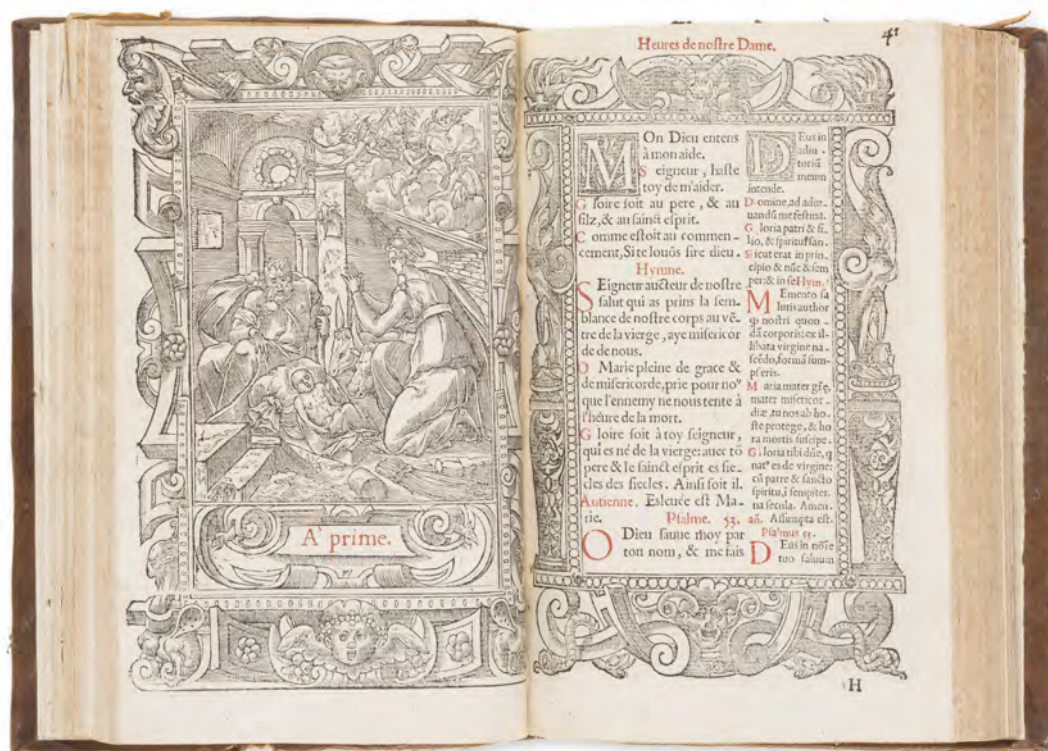 A' prime.
Heures de nostre Dame.
41
MOn Dieu entens
à mon aide.
Seigneur, haste
toy de m'aider.
Gloire soit au pere, & au
filz, & au sainct esprit.
Comme estoit au commen-
cement, Si te louõs sire dieu.
Hymne.
SEigneur aucteur de nostre
salut qui as prins la sem-
blance de nostre corps au vẽ-
tre de la vierge, aye misericor
de de nous.
O Marie pleine de grace &
de misericorde, prie pour noꝰ
que l'ennemy ne nous tente à
l'heure de la mort.
Gloire soit à toy seigneur,
qui es né de la vierge: auec tõ
pere & le sainct esprit es sie-
cles des siecles. Ainsi soit il.
Antienne. Esleuée est Ma-
rie. Psalme. 53.
O Dieu sauue moy par
ton nom, & me fais
DEus in
adiu-
toriũ
meum
intende.
Domine, ad adiu-
uandũ me festina.
Gloria patri & fi-
lio, & spiritui san.
Sicut erat in prin-
cipio & nũc & sem
per: & in se Hym.
MEmento sa
lutis author
ꝙ nostri quon-
dã corporis: ex il-
libata virgine na-
scẽdo, formã sum-
pseris.
Maria mater grẽ,
mater misericor-
diæ, tu nos ab ho-
ste protege, & ho
ra mortis suscipe.
Gloria tibi dñe, q
natꝰ es de virgine:
cũ patre & sancto
spiritu, ĩ sempiter.
na secula. Amen.
añ. Assumpta est.
Psalmus 53.
DEus in nõie
tuo saluum
H